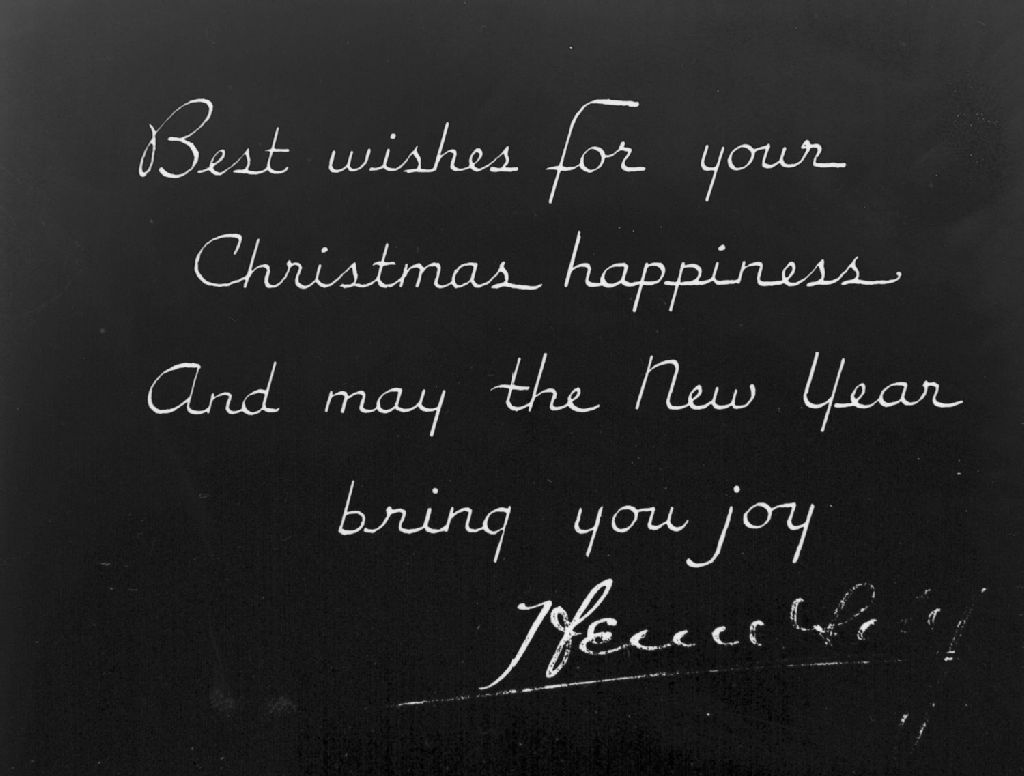 Best wishes for your
Christmas happiness
And may the New Year
bring you joy